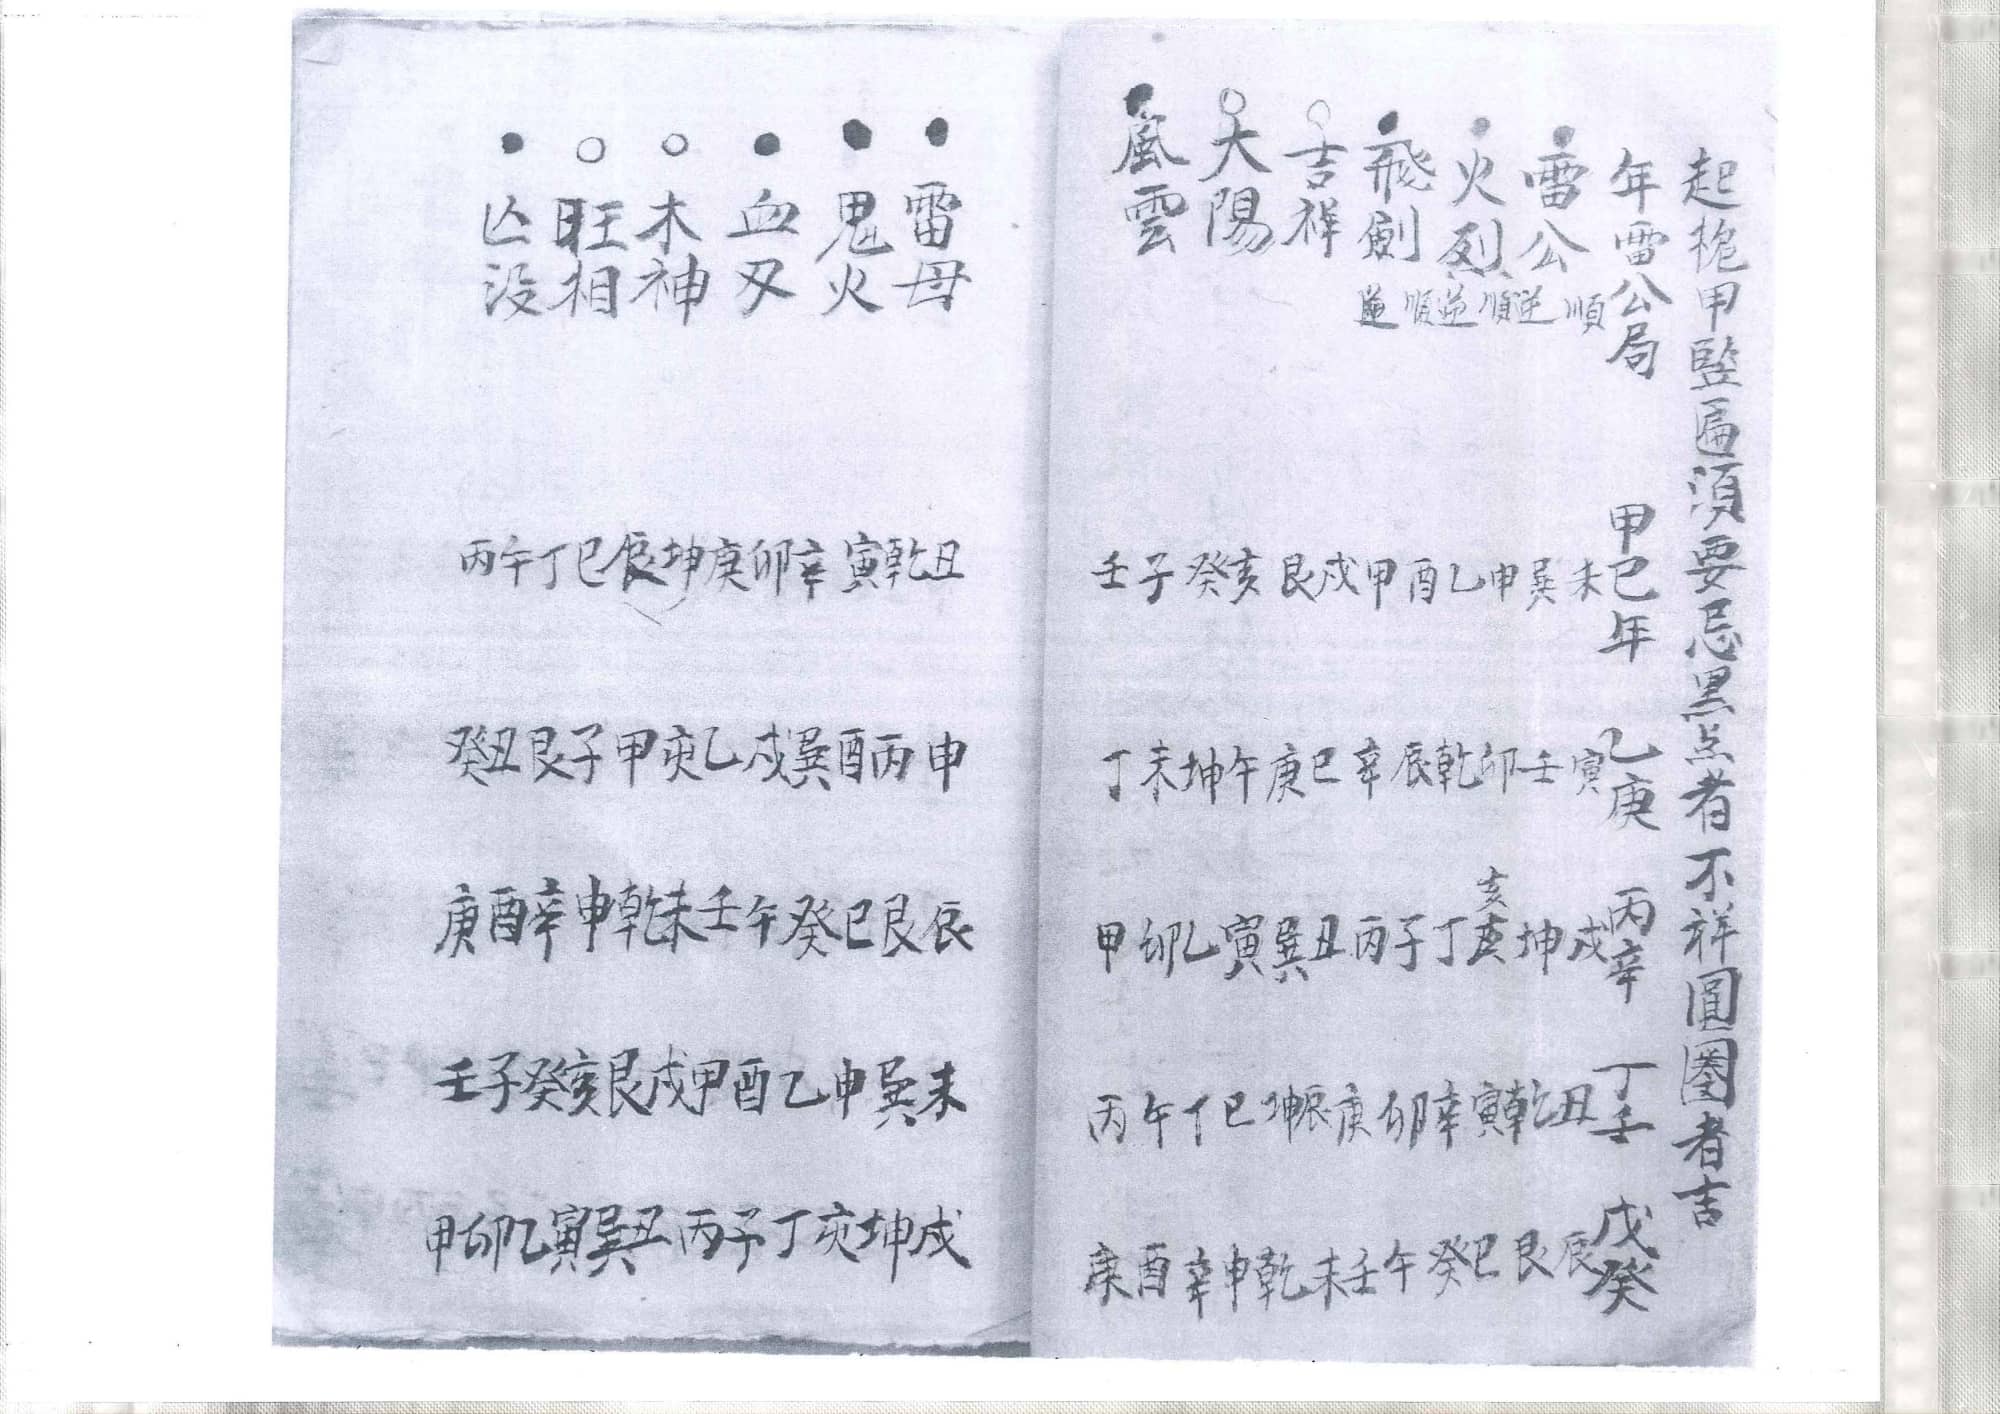 起桅甲竪匾須要忌黑点者不祥圓圈者吉
年雷公局 甲已年 乙庚 丙辛 丁壬 戊癸
雷公 順逆
火烈 順逆
飛劍 順逆
吉祥
太陽
風雲
未巽申乙酉甲戌艮亥癸子壬
寅壬卯乾辰辛巳庚午坤未丁
戌坤亥亥丁子丙丑巽寅乙卯甲
丑乾寅辛卯庚辰坤巳丁午丙
辰艮巳癸午壬未乾申辛酉庚
雷母
鬼火
血刃
木神
旺相
亾没
丑乾寅辛卯庚坤辰巳丁午丙
申丙酉巽戌乙亥甲子艮丑癸
辰艮巳癸午壬未乾申辛酉庚
未巽申乙酉甲戌艮亥癸子壬
戌坤亥丁子丙丑巽寅乙卯甲